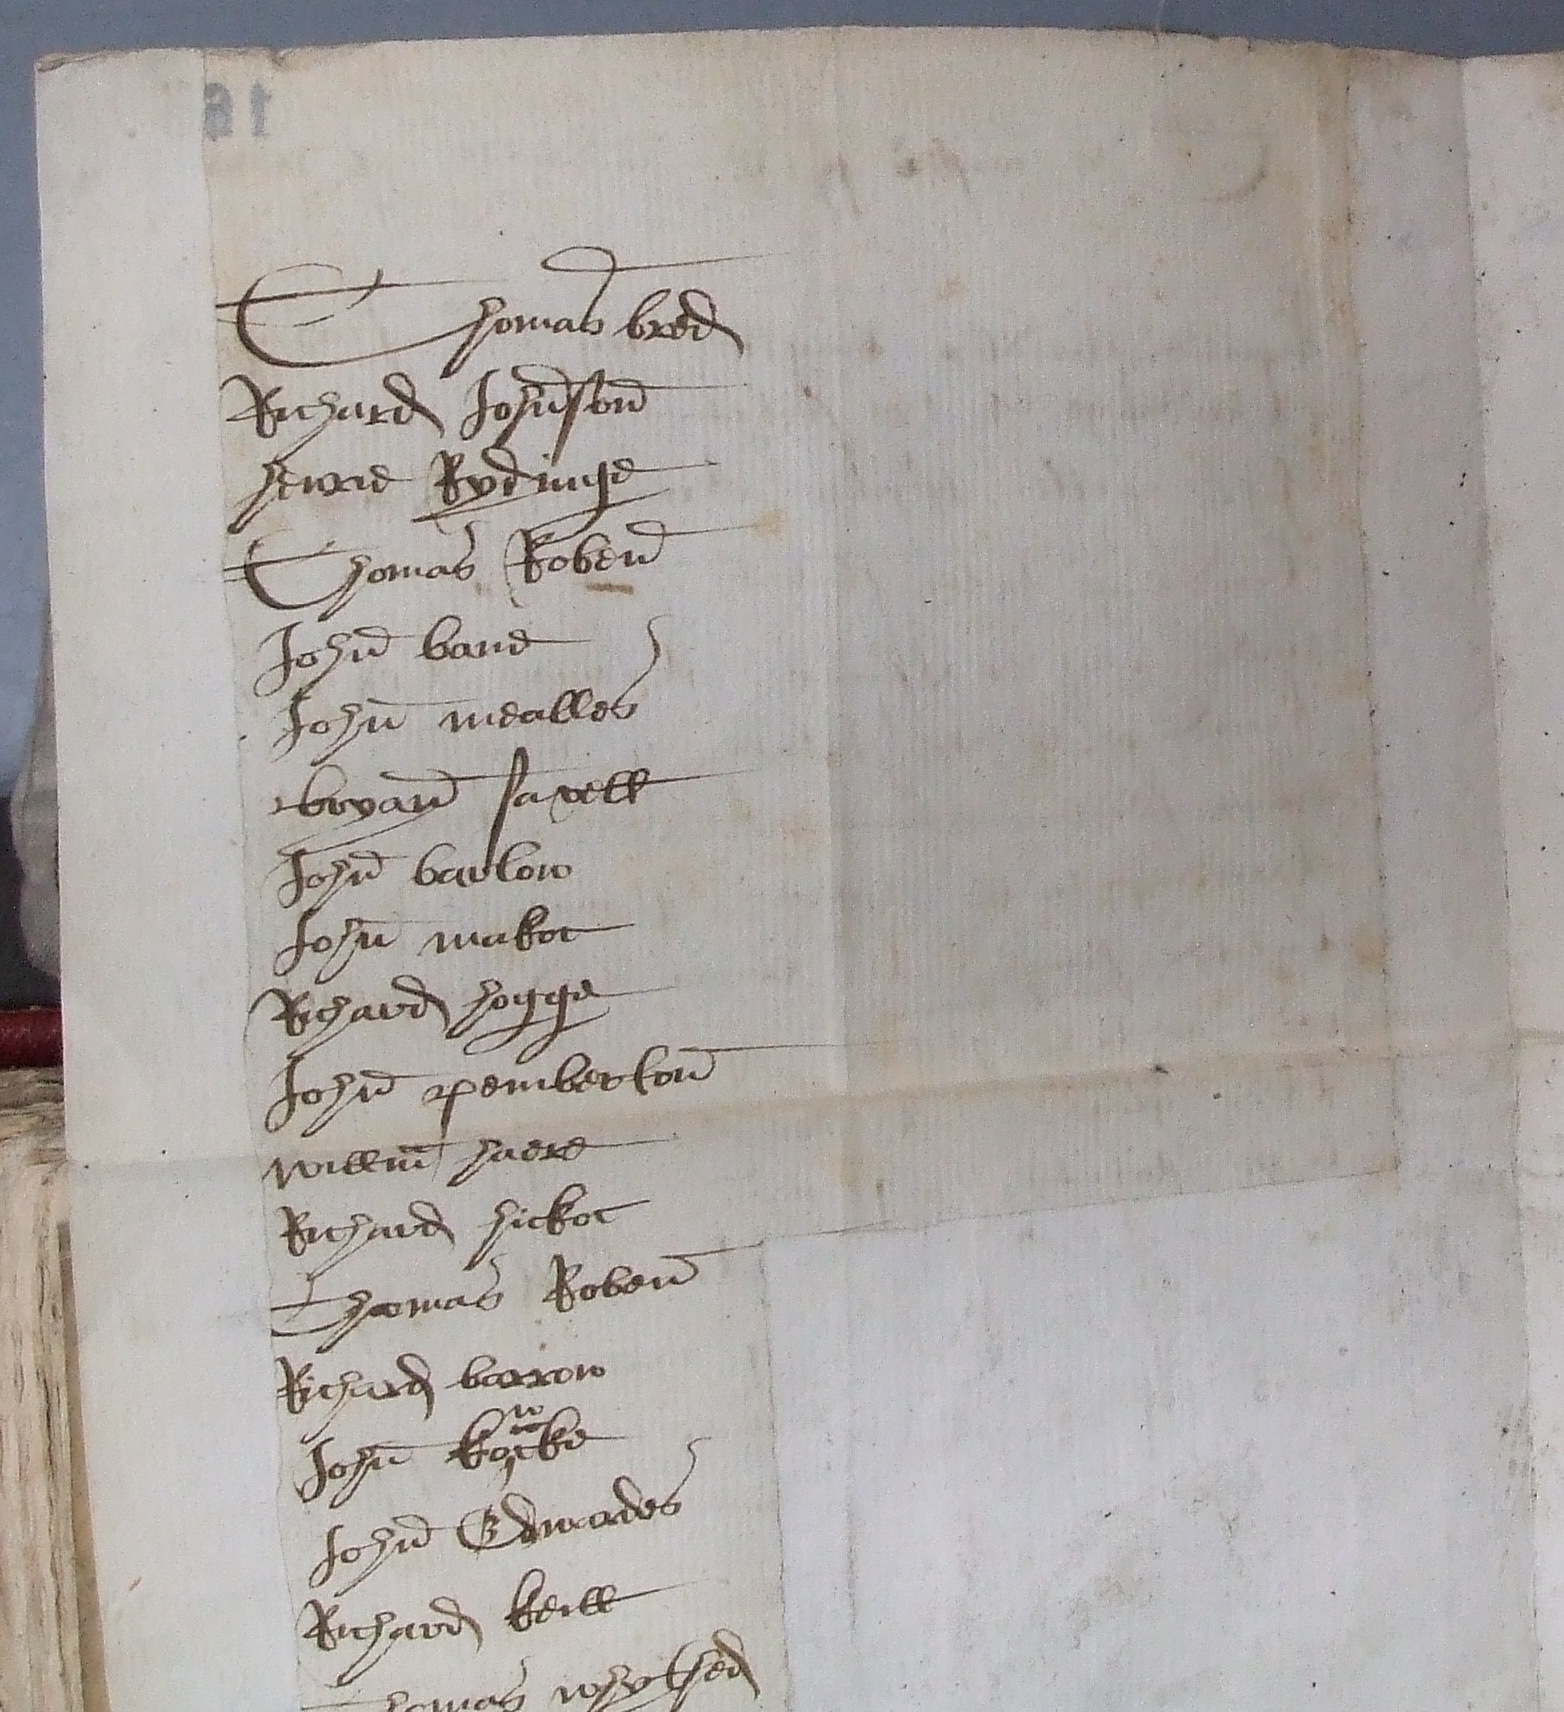 Thomas bred
Richard Johnson
henrie Rydinge
Thomas Roben
John bane
John mealles
bryan savell
John barlow
John makot
Richard hogge
John pemberton
willm haere
Richard hickot
Thomas Roben
Richard barrow
John
John Edwardes
Richard kell
Thomas whythed